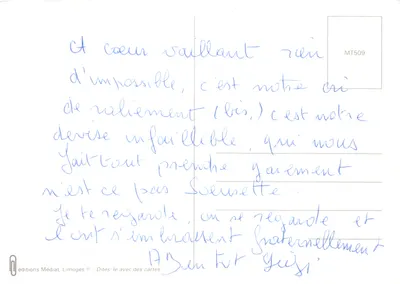 A cœur vaillant rien
MT509
d'impossible, c'est notre cri
de raliement (bis,) c'est notre
devise infaillible, qui nous
fait tout prendre gaiement
n'est ce pas Soeusette
Je te regarde, on se regarde et
l'ont s'embrassent fraternellement
A Bientot
éditions Médias, Limoges © Dites-le avec des cartes